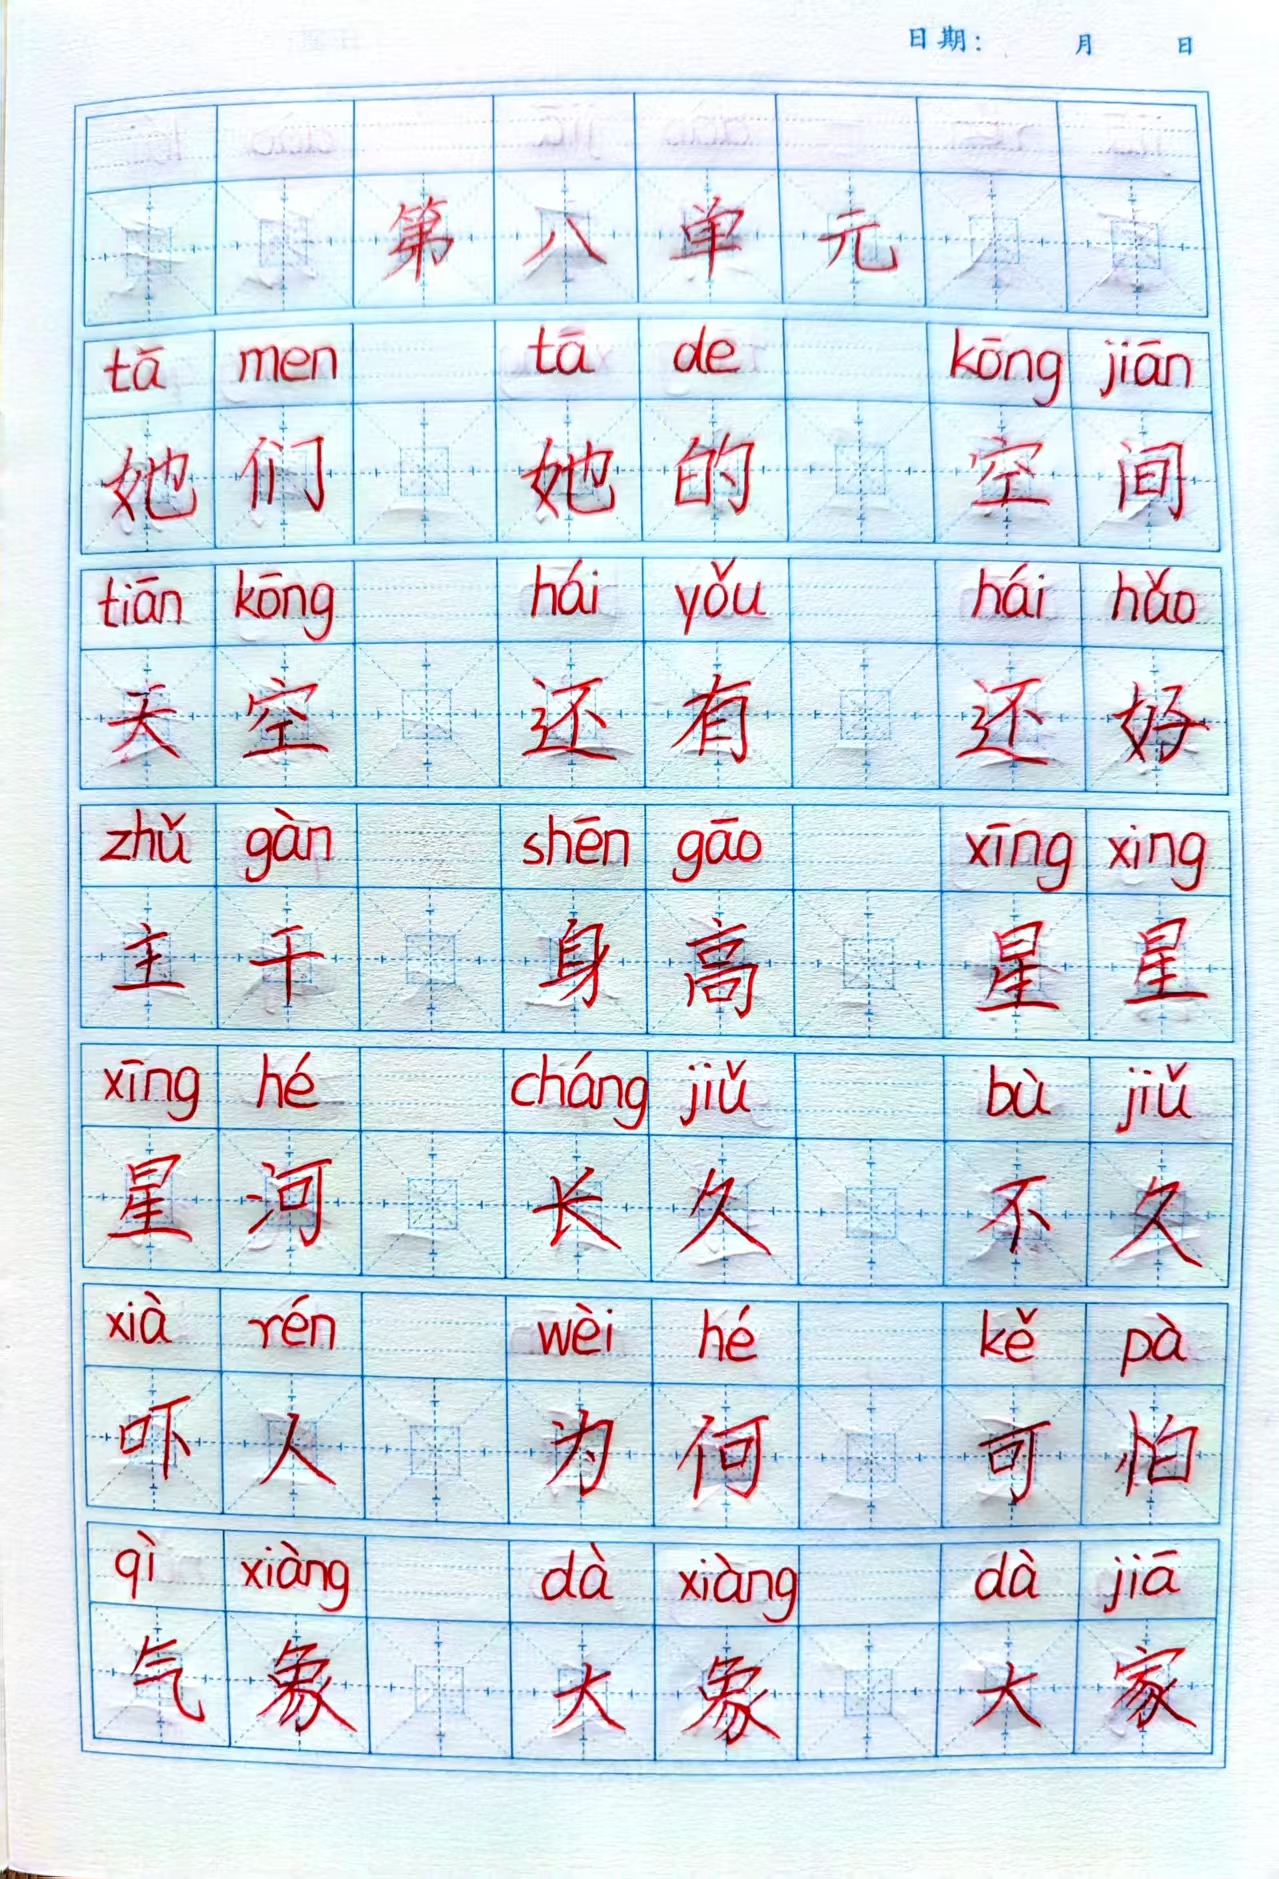 日期： 月 日
第八单元
tā men tā de kōng jiān
她们 她的 空间
tiān kōng hái yǒu hái hǎo
天空 还有 还好
zhǔ gàn shēn gāo xīng xing
主干 身高 星星
xīng hé cháng jiǔ bù jiǔ
星河 长久 不久
xià rén wèi hé kě pà
吓人 为何 可怕
qì xiàng dà xiàng dà jiā
气象 大象 大家